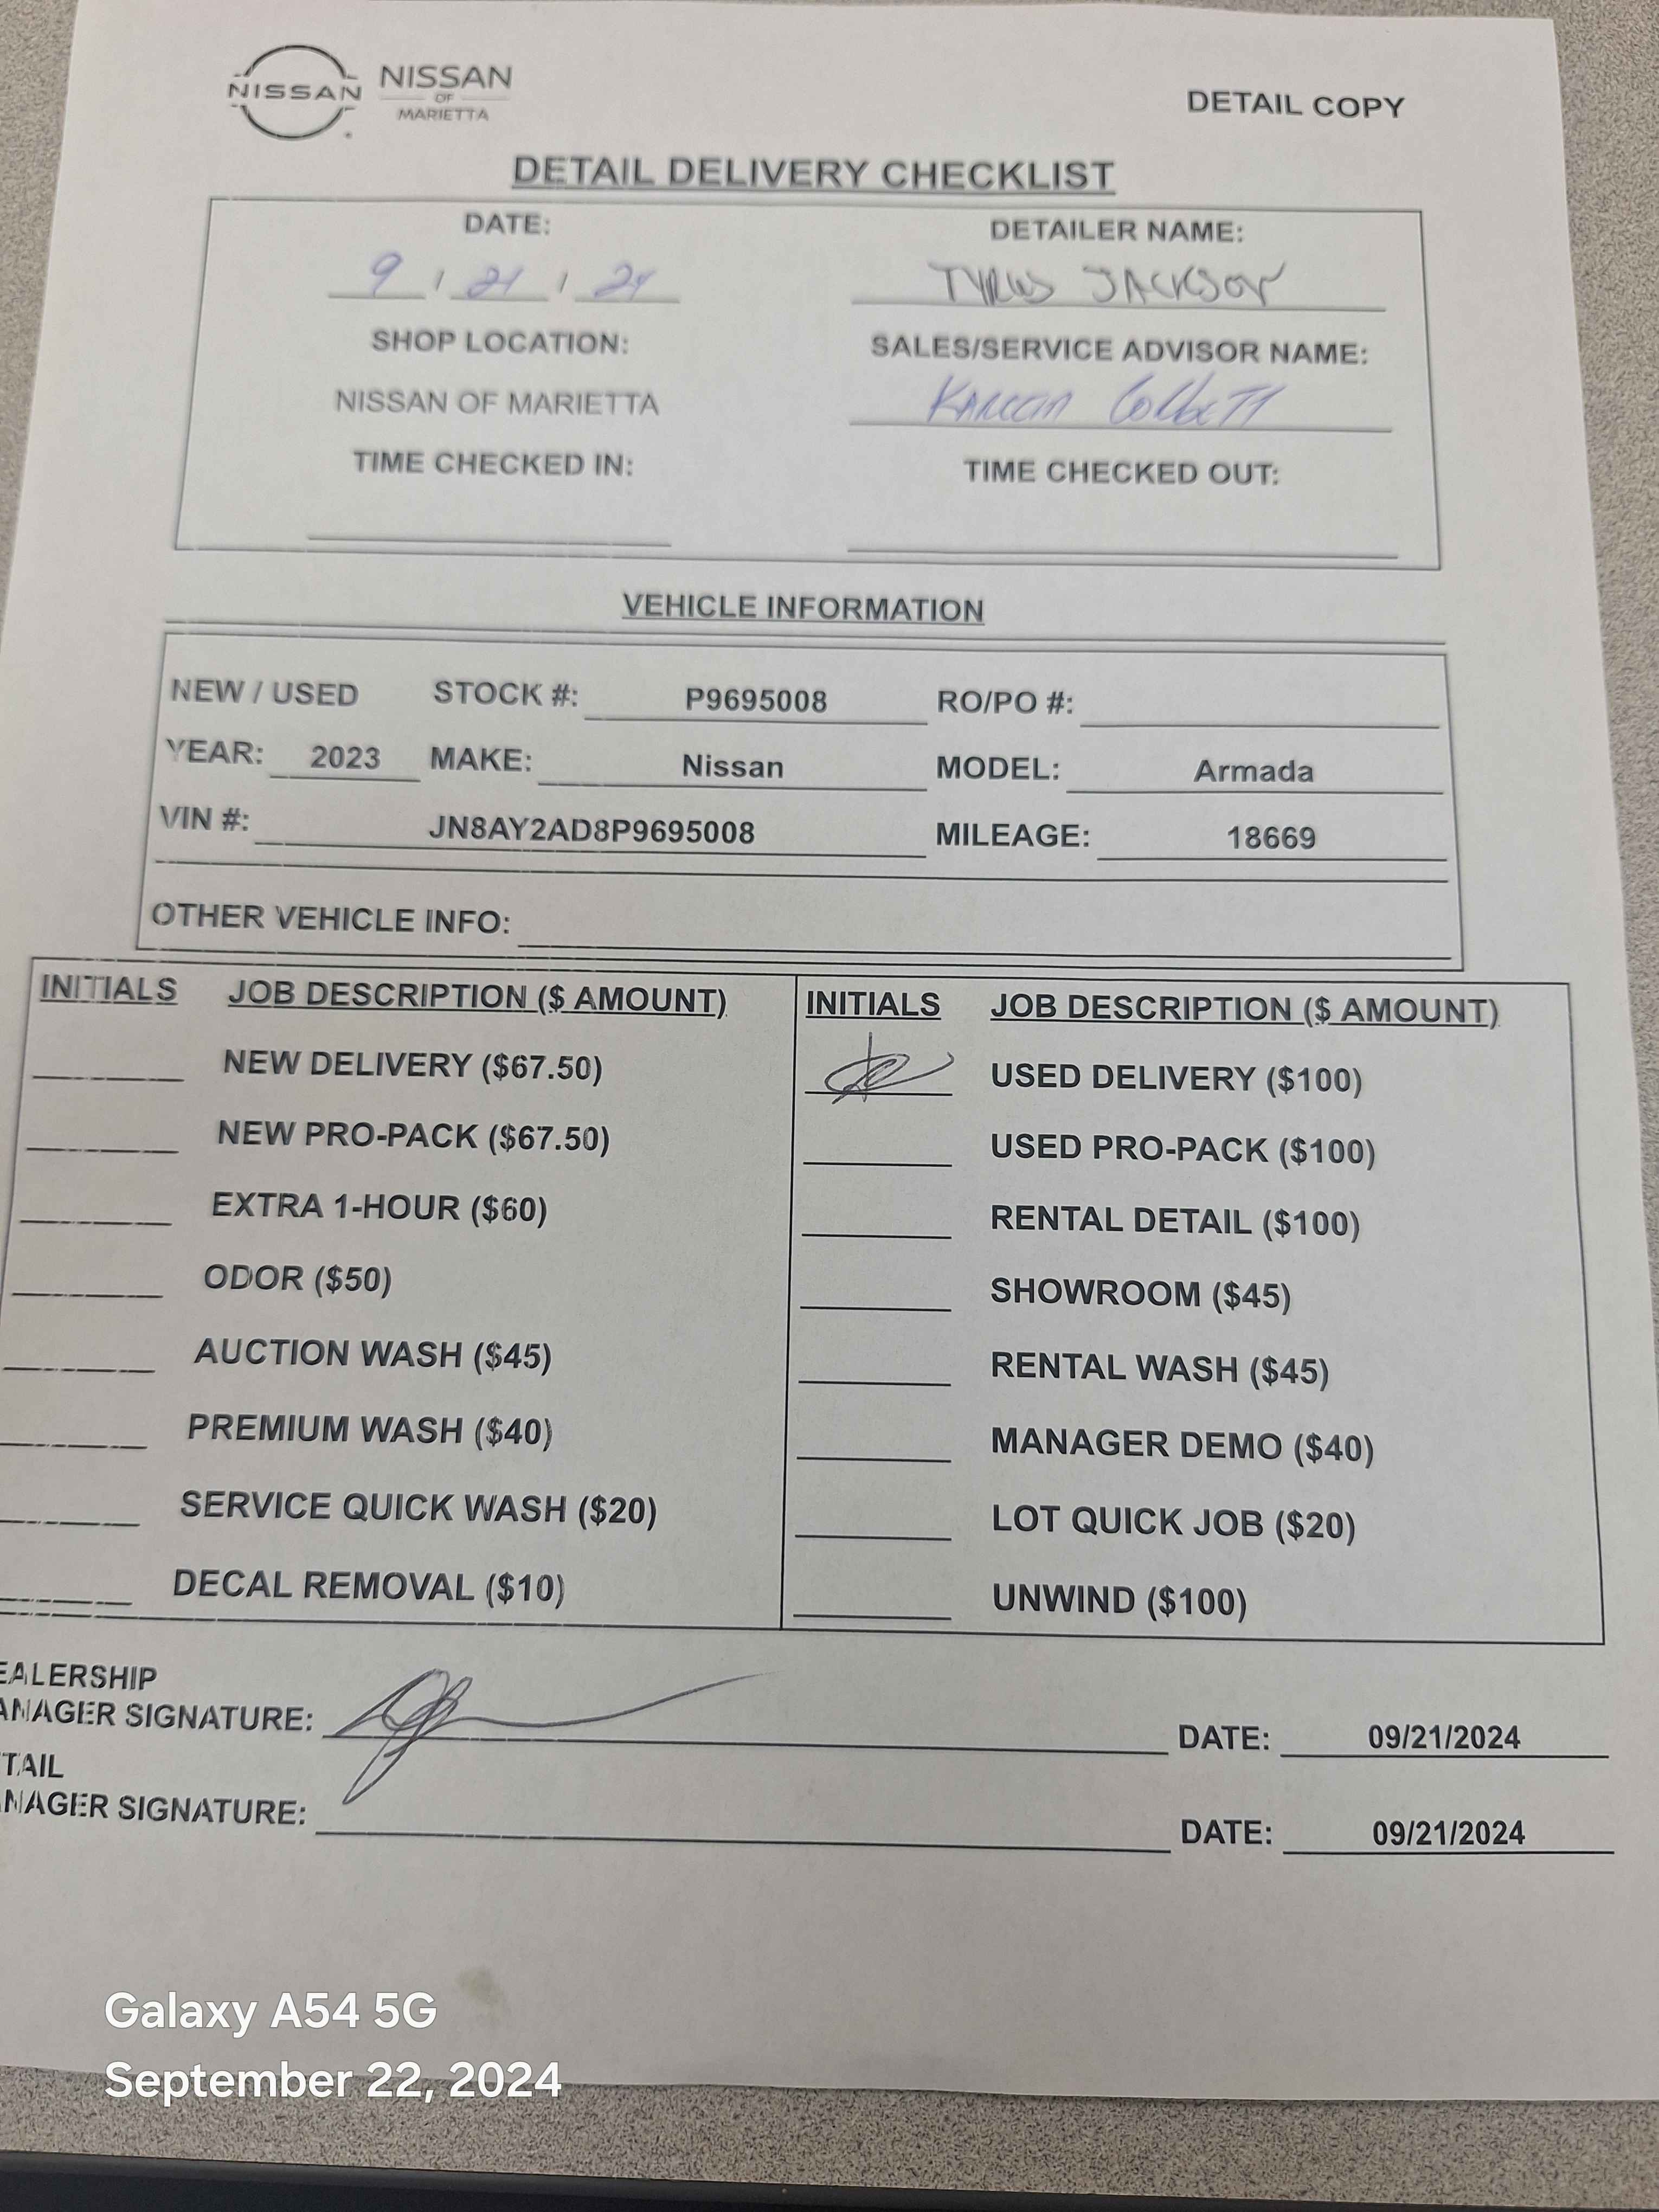 NISSAN NISSAN
OF
MARIETTA
DETAIL COPY
DETAIL DELIVERY CHECKLIST
DATE: DETAILER NAME:
9 / 21 / 24 TYRUS JACKSON
SHOP LOCATION: SALES/SERVICE ADVISOR NAME:
NISSAN OF MARIETTA
TIME CHECKED IN: TIME CHECKED OUT:
VEHICLE INFORMATION
NEW / USED STOCK #: P9695008 RO/PO #:
YEAR: 2023 MAKE: Nissan MODEL: Armada
VIN #: JN8AY2AD8P9695008 MILEAGE: 18669
OTHER VEHICLE INFO:
INITIALS JOB DESCRIPTION ($ AMOUNT) INITIALS JOB DESCRIPTION ($ AMOUNT)
NEW DELIVERY ($67.50) USED DELIVERY ($100)
NEW PRO-PACK ($67.50) USED PRO-PACK ($100)
EXTRA 1-HOUR ($60) RENTAL DETAIL ($100)
ODOR ($50) SHOWROOM ($45)
AUCTION WASH ($45) RENTAL WASH ($45)
PREMIUM WASH ($40) MANAGER DEMO ($40)
SERVICE QUICK WASH ($20) LOT QUICK JOB ($20)
DECAL REMOVAL ($10) UNWIND ($100)
EALERSHIP
ANAGER SIGNATURE: DATE: 09/21/2024
TAIL
NAGER SIGNATURE: DATE: 09/21/2024
Galaxy A54 5G
September 22, 2024